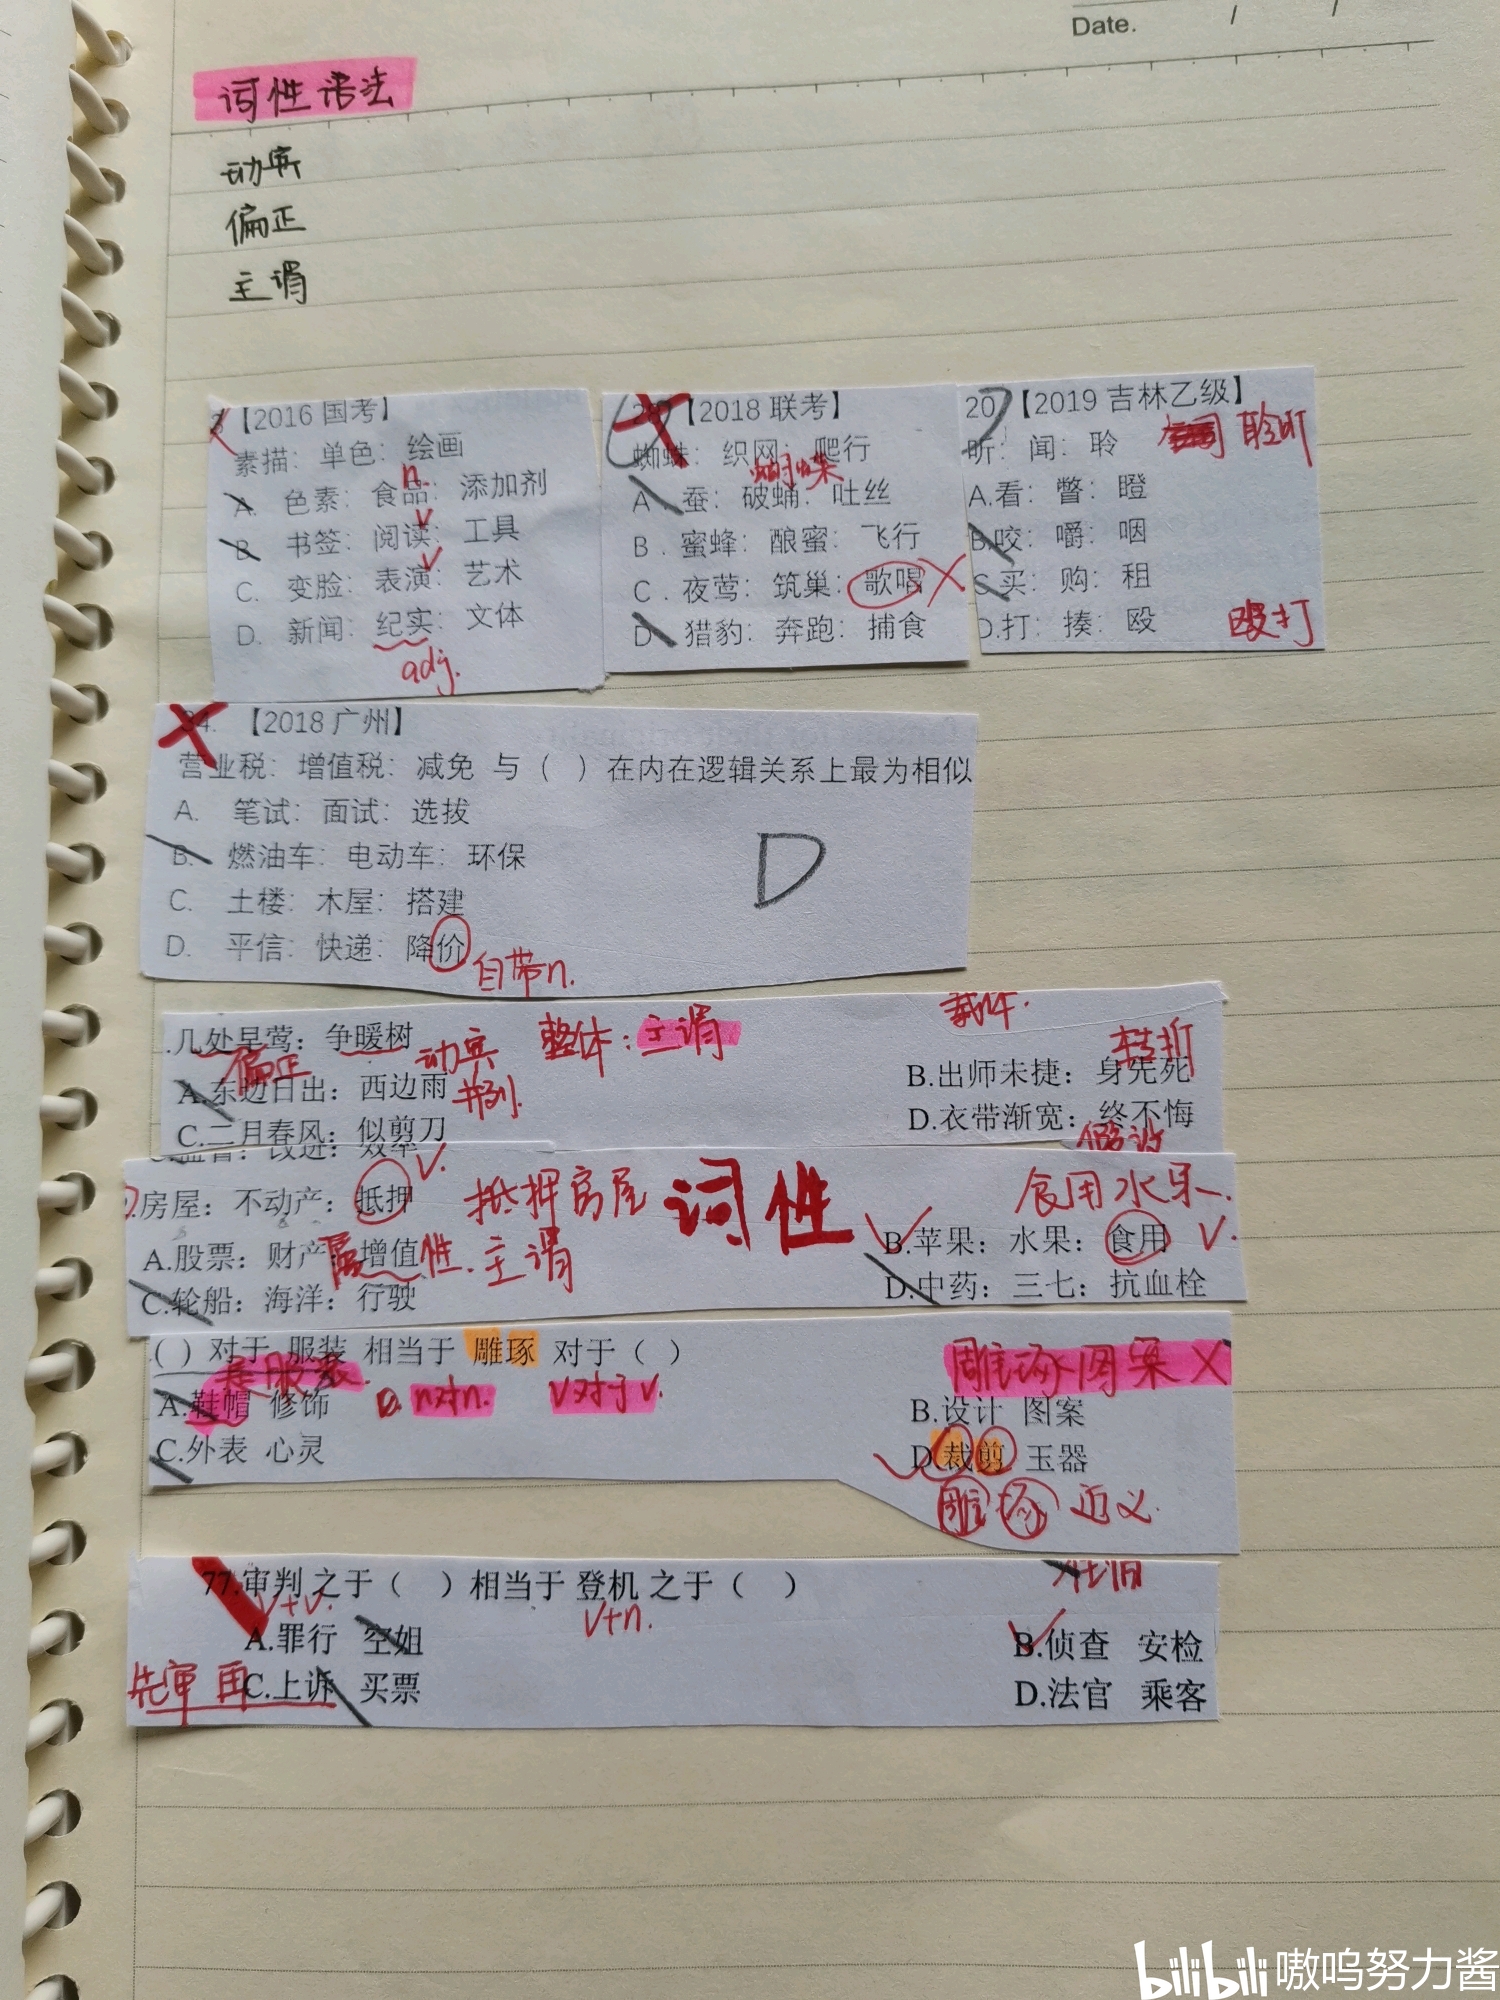 Date. / /
词性语法
动宾
偏正
主谓
3【2016 国考】
素描：单色：绘画
n.
A. 色素：食品：添加剂
v
B. 书签：阅读：工具
v
C. 变脸：表演：艺术
D. 新闻：纪实：文体
adj.
【2018 联考】
蜘蛛：织网：爬行
蝴蝶
A. 蚕：破蛹：吐丝
B. 蜜蜂：酿蜜：飞行
C. 夜莺：筑巢：歌唱
D. 猎豹：奔跑：捕食
20【2019 吉林乙级】
聆听
听：闻：聆
A.看：瞥：瞪
B.咬：嚼：咽
C.买：购：租
D.打：揍：殴
殴打
34. 【2018 广州】
营业税：增值税：减免 与（ ）在内在逻辑关系上最为相似
A. 笔试：面试：选拔
B. 燃油车：电动车：环保
D
C. 土楼：木屋：搭建
D. 平信：快递：降价
自带n.
几处早莺：争暖树
偏正 动宾 整体：主谓
转折
A.东边日出：西边雨 并列.
B.出师未捷：身先死
C.二月春风：似剪刀
D.衣带渐宽：终不悔
假设
v.
房屋：不动产：抵押 抵押房屋 词性 食用水果.
A.股票：财产：增值 属性.主谓
B.苹果：水果：食用 v.
C.轮船：海洋：行驶
D.中药：三七：抗血栓
( ) 对于 服装 相当于 雕琢 对于（ ）
雕琢图案 X
n对n. v对于v.
A.鞋帽 修饰
B.设计 图案
C.外表 心灵
D.裁剪 玉器
雕 琢 近义.
77.审判 之于（ ）相当于 登机 之于（ ）
v+v. v+n.
A.罪行 空姐
B.侦查 安检
先审 再
C.上诉 买票
D.法官 乘客
bilibili 嗷呜努力酱